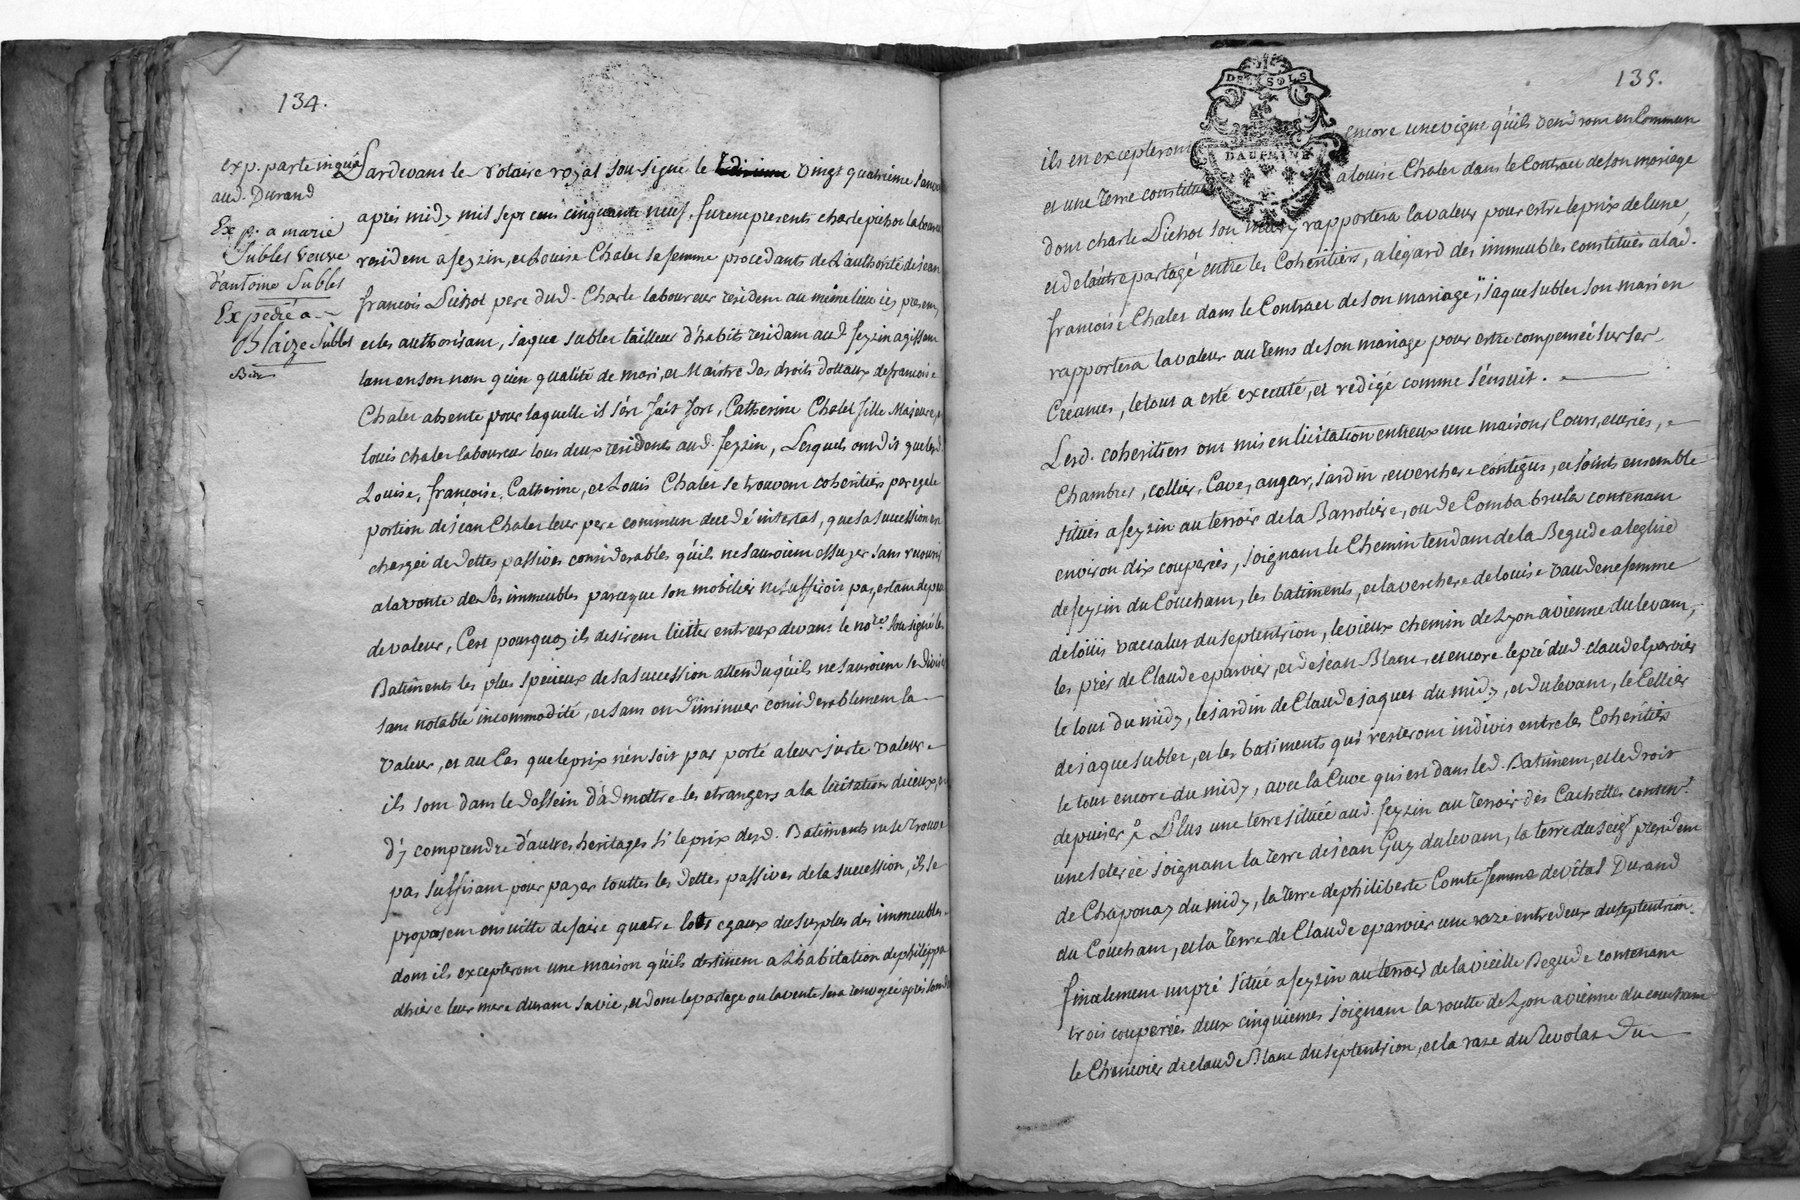 134.
exp. parte in qua
aud. Durand
Exp. a marie
Subles veuve
d'antoine Subles
Expedié a
Blaize Subles
Pardevant le Notaire royal sousigné le vingt quatrieme
apres midy mil sept cens cinquante neuf, furent presents charle pichot laboureur
resident a feyzin, et Louise Chalet sa femme procedants de L'authorité de jean
francois Pichot pere dud. Charle laboureur resident au même lieu icy present
et les authorisant, jaque subles tailleur d'habits residant aud. feyzin agissant
tant en son nom qu'en qualité de mari, et Maistre des droits dottaux de francoise
Chalet absente pour laquelle il s'est fait fort, Catherine Chalet fille Majeure, et
louis chalet laboureur tous deux residents aud. feyzin, Lesquels ont dit que lesd.
Louise, francoise, Catherine, et Louis Chalet se trouvent coheritiers par egale
portion de jean Chalet leur pere commun decedé intestat, que sa succession est
chargée de dettes passives considerables qu'ils ne sauroient essuyer sans recourir
a la vente de ses immeubles parceque son mobilier ne suffiroit pas, estant de peu
de valeur, C'est pourquoy ils desirent liciter entreux devant le nore. sousigné les
Batiments les plus specieux de sa succession attendu qu'ils ne sauroient se diviser
sans notable incommodité, et sans en diminuer considerablement la
valeur, et au Cas que le prix n'en soit pas porté a leur juste valeur
ils sont dans le dessein d'admettre les etrangers a la licitation d'iceux, et
d'y comprendre d'autres heritages si le prix desd. Batiments ne se trouve
pas suffisant pour payer touttes les dettes passives de la succession, ils se
proposent ensuitte de faire quatre lots egaux du surplus des immeubles
dont ils excepteront une maison qu'ils destinent a L'habitation de philippa
dhiere leur mere durant sa vie, et dont le partage ou la vente sera renvoyée apres son
135.
DEUX SOLS
DAUPHINE
ils en excepteront encore une vigne qu'ils vendront en Commun
et une Terre constituée a louise Chalet dans le Contract de son mariage
dont charle Pichot son mary rapportera la valeur pour estre le prix de l'une,
et de l'autre partagé entre les Coheritiers, a legard des immeubles constitués a lad.
francoise Chalet dans le Contract de son mariage, jaque subles son mari en
rapportera la valeur au tems de son mariage pour estre compensée sur ses
Creances, le tout a esté executé, et redigé comme s'ensuit.
Lesd. coheritiers ont mis en licitation entreux une maison, Cours, ecuries,
Chambres, cellier, Cave, angar, jardin, et verchere contigus, et joints ensemble
situés a feyzin au terroir de la Barroliere, ou de Comba brula contenant
environ dix couperées, joignant le Chemin tendant de la Begude a leglise
de feyzin du Couchant, les batiments, et la verchere de louise vaudene femme
de louis vaccalus du septentrion, le vieux chemin de Lyon a vienne du levant,
les prés de Claude eparvier, et de jean Blanc, et encore le pré dud. claude eparvier
le tout du midy, le jardin de Claude jaques du midy, et du levant, le Cellier
de jaque subles, et les batiments qui resteront indivis entre les Coheritiers
le tout encore du midy, avec la Cuve qui est dans led. Batiment, et le droit
de puiser. Plus une terre située aud. feyzin au terroir des Cachettes conten.t
une seterée joignant la terre de jean Guy du levant, la terre du seig.r president
de Chaponay du midy, la terre de philiberte Comte femme de vital Durand
du Couchant, et la terre de Claude eparvier une raze entredeux du septentrion.
finalement un pré situé a feyzin au terroir de la vieille Begude contenant
trois couperées deux cinquiemes joignant la routte de Lyon a vienne du couchant
le Chenevier de claude Blanc du septentrion, et la raze du Revolat du